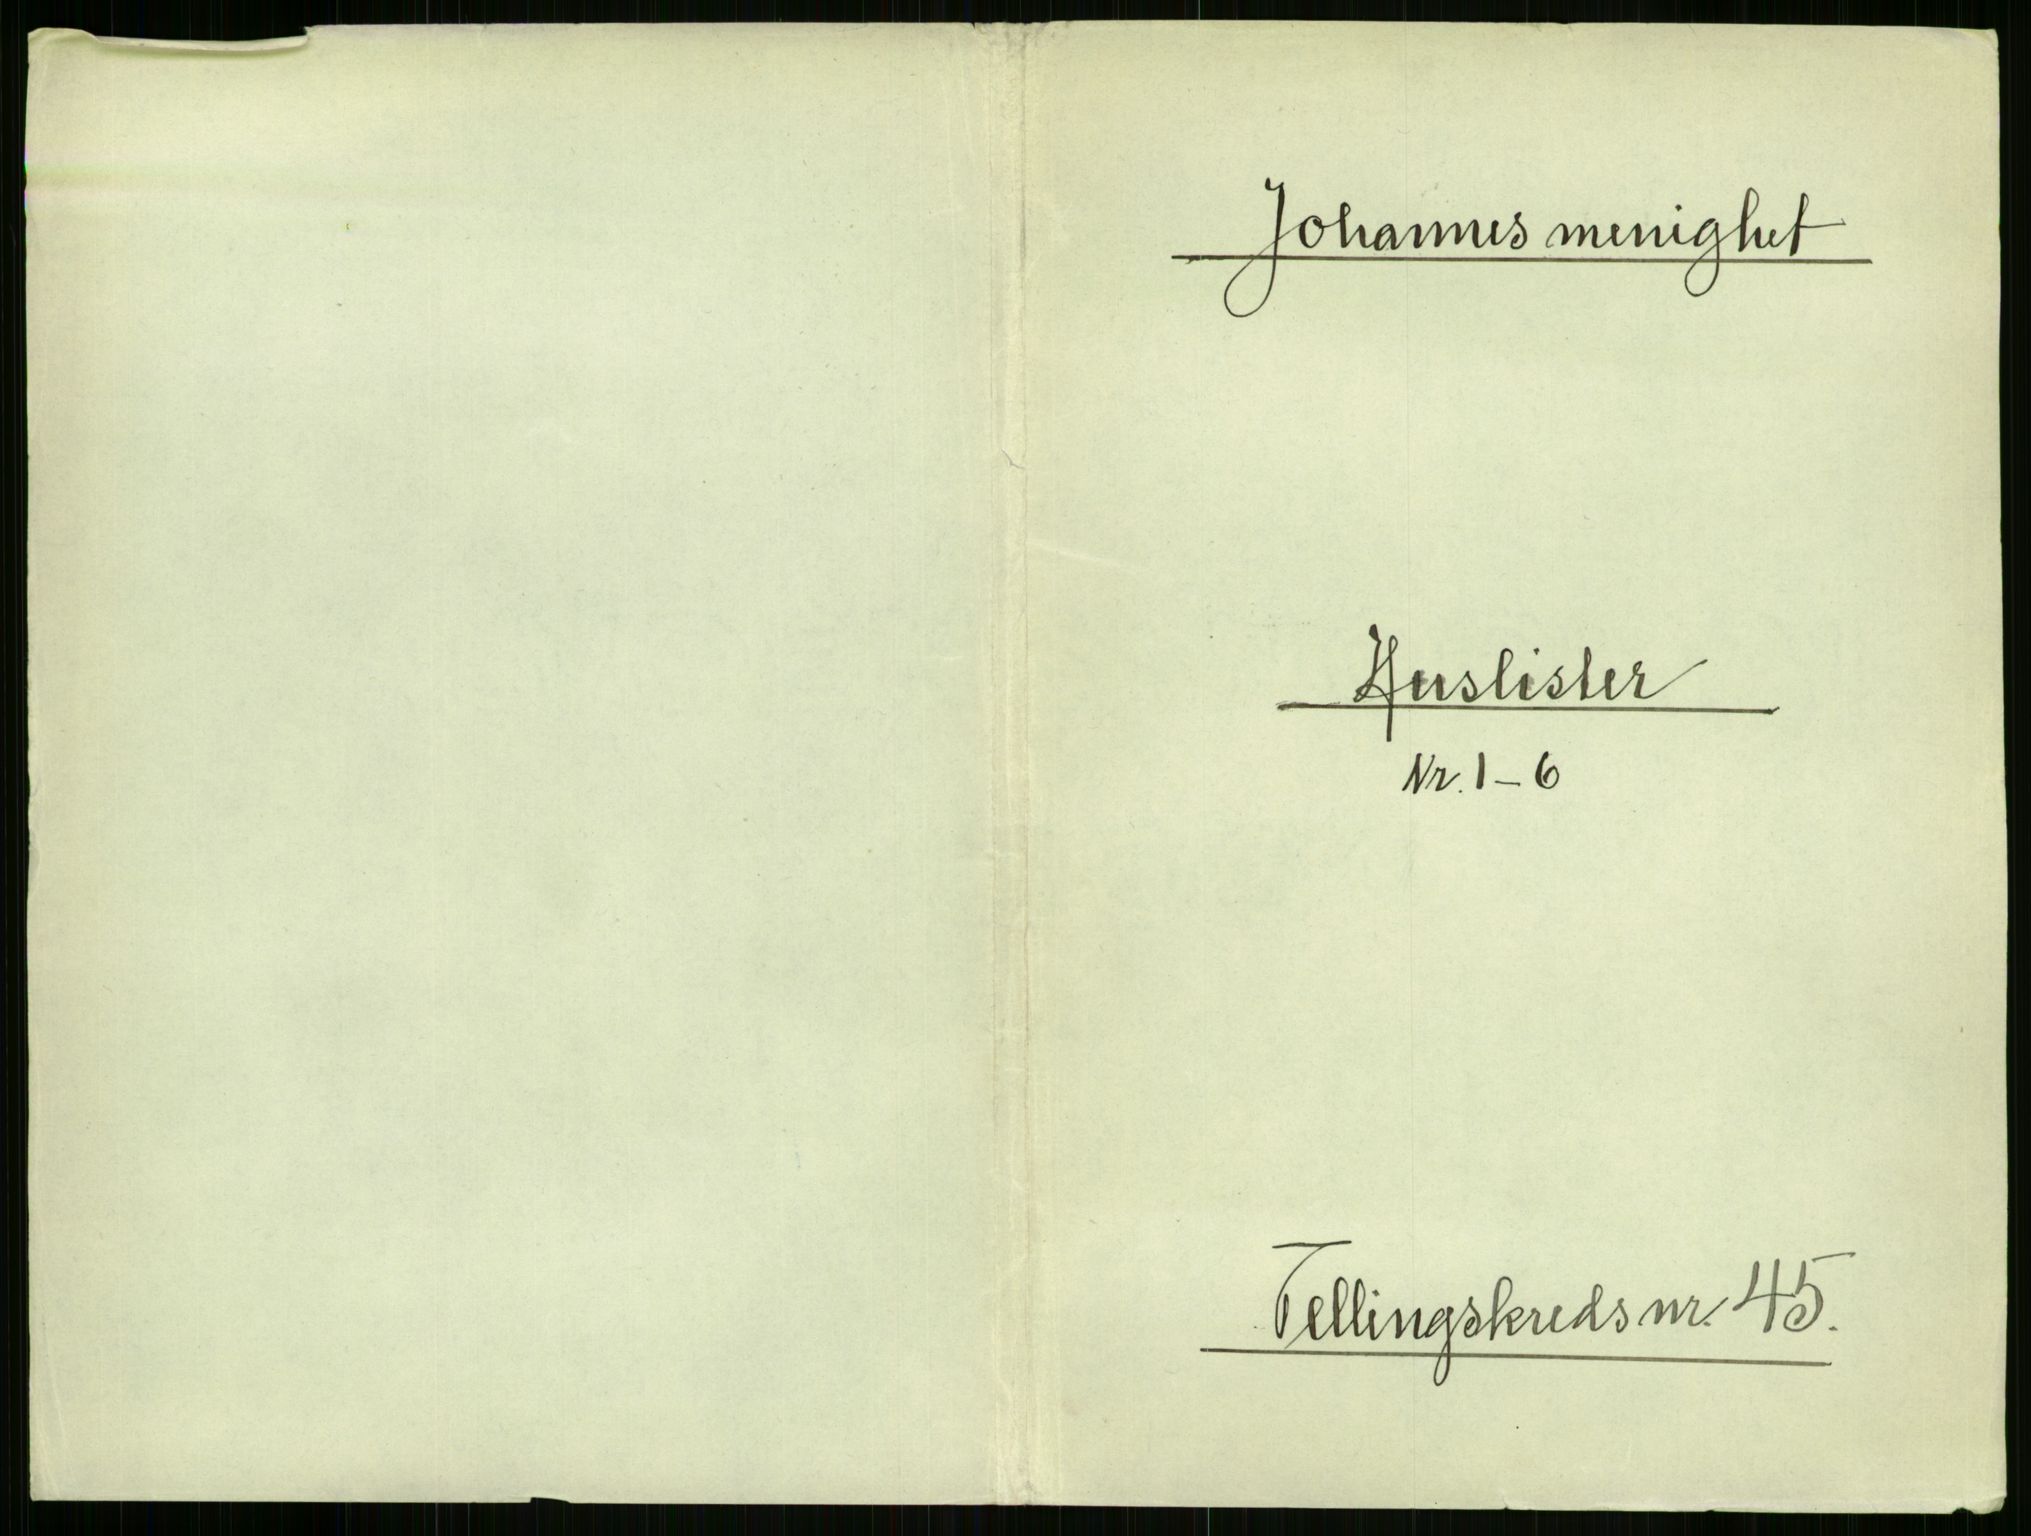 Johannes menighet
Huslister
Nr. 1-6
Tellingskreds nr. 45.